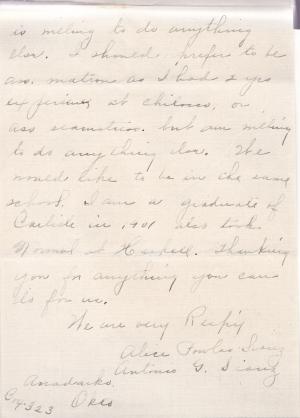 is willing to do anything
else. I should prefer to be
ass. matron as I had 2 yrs
experience at Chilocco, or
ass seamstress. but am willing
to do anything else. We
would like to be in the same
school. I am a graduate of
Carlisle in 1901 also took
Normal at Haskell. Thanking
you for anything you can
do for us.
We are very Resp'y
Alice Powlas
Antonio
Anadarko.
Okla
323